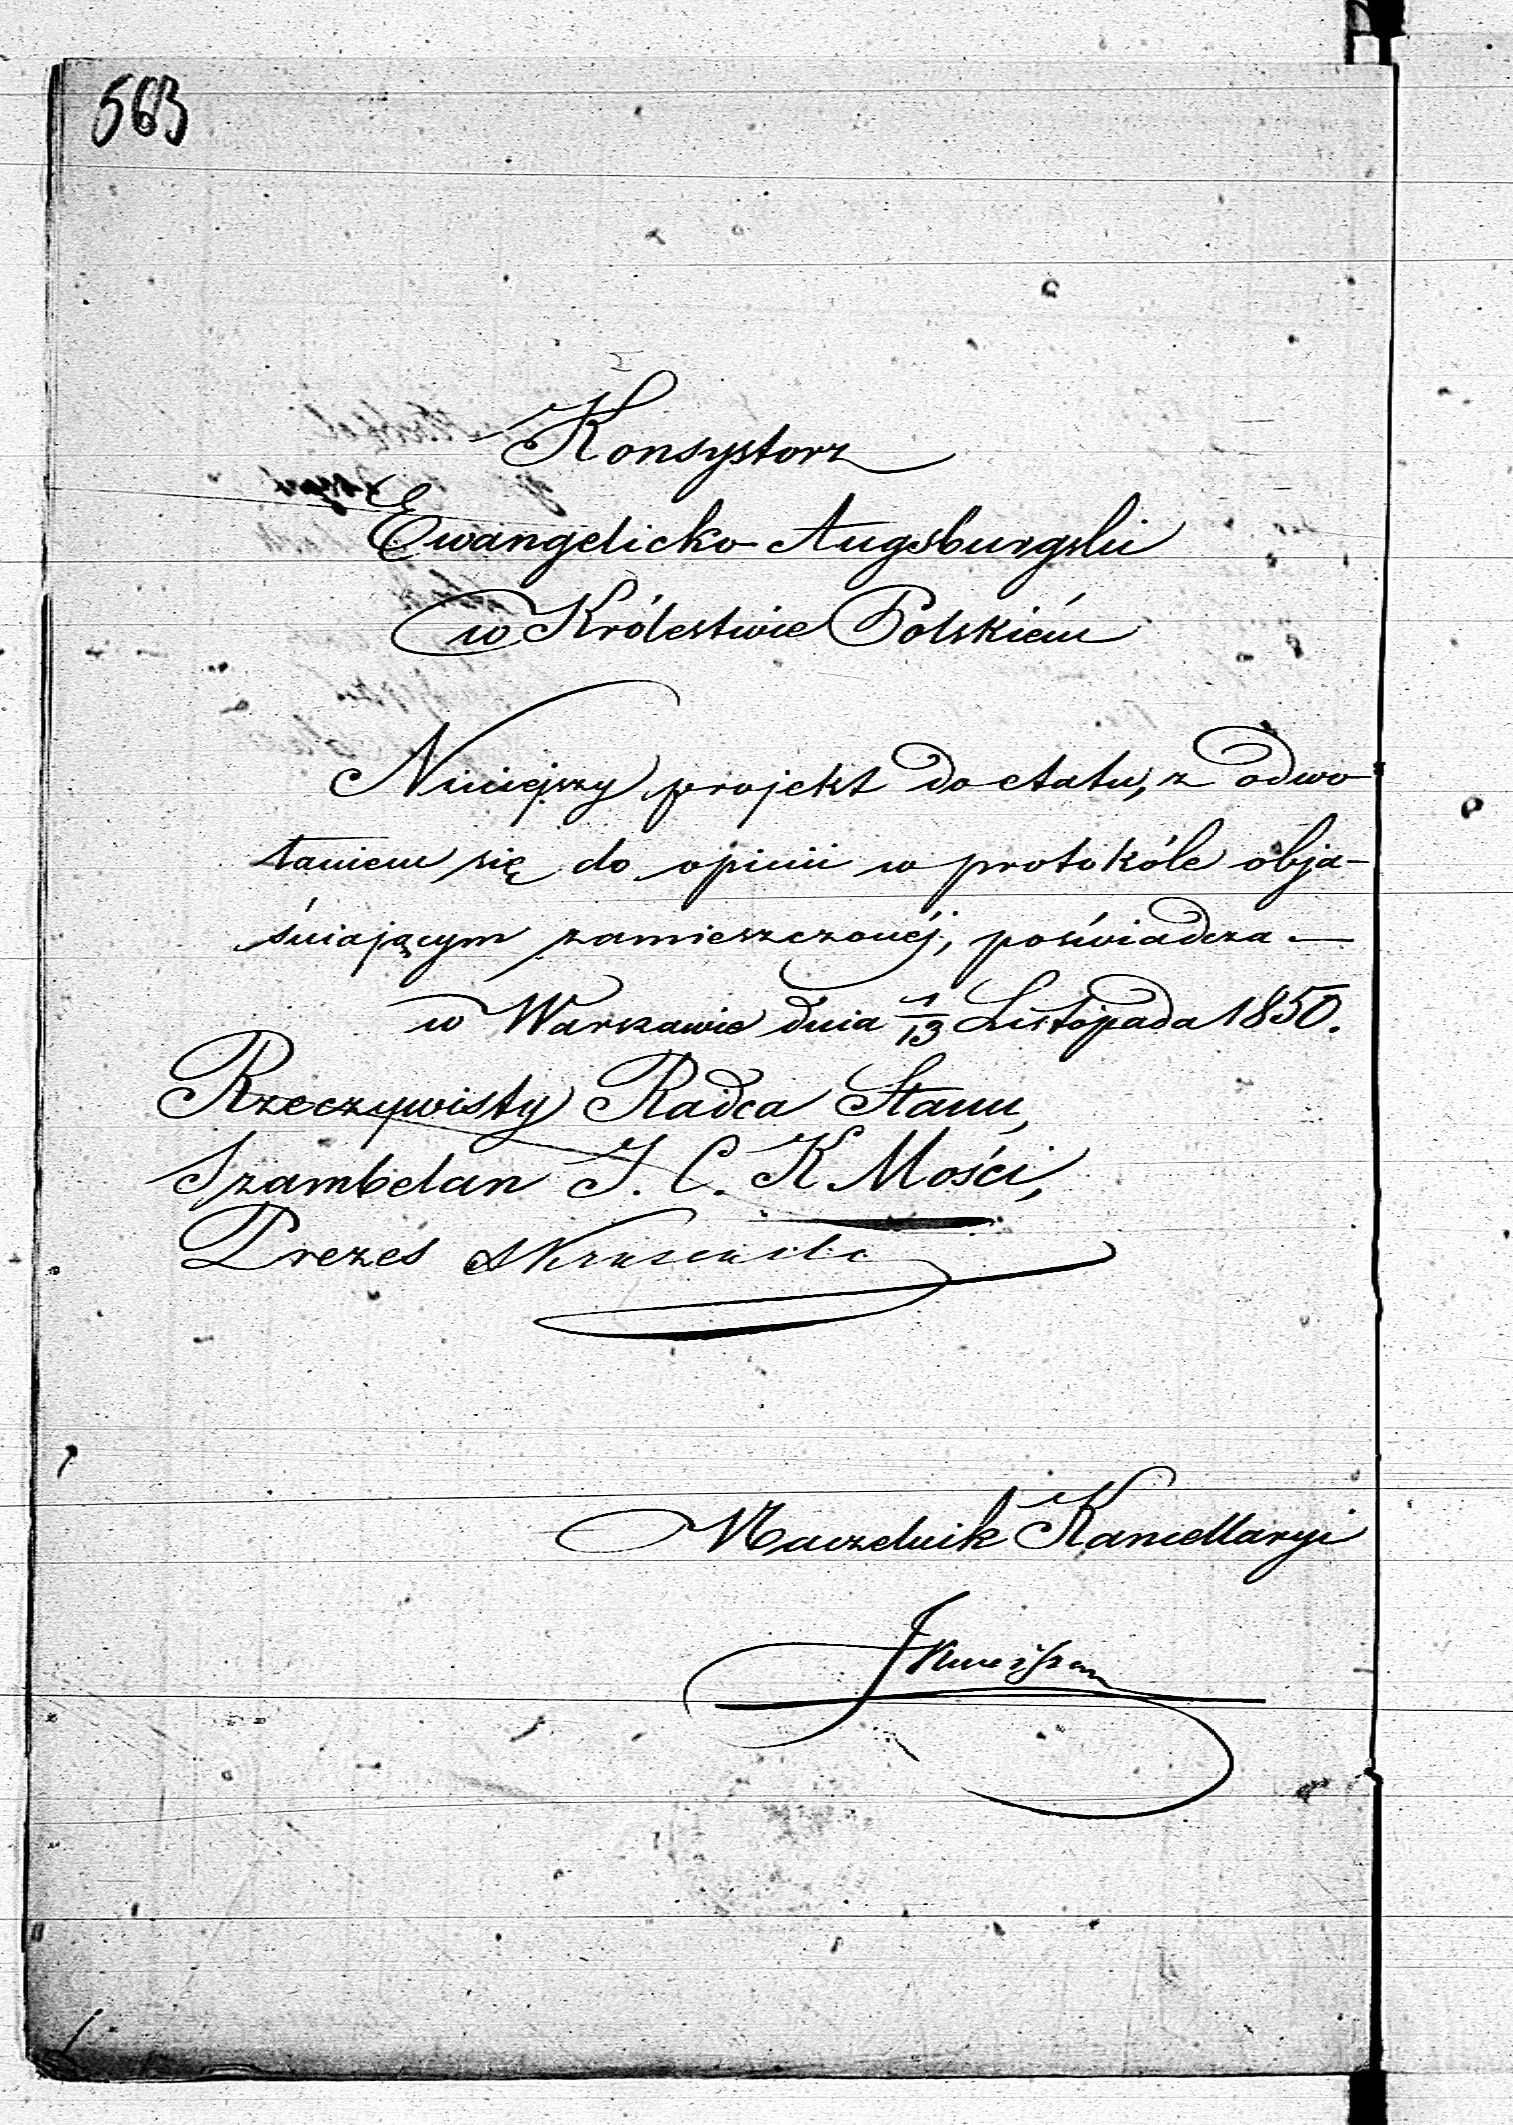 563
Konsystorz
Ewangelicko-Augsburgski
w Królestwie Polskiém
Niniejszy projekt do etatu, z odwo-
łaniem się do opinii w protokóle obja-
śniającym zamieszczonéj, poświadcza —
w Warszawie dnia 1/13 Listopada 1850.
Rzeczywisty Radca Stanu,
Szambelan J. C. K. Mości,
Prezes
Naczelnik Kancellaryi